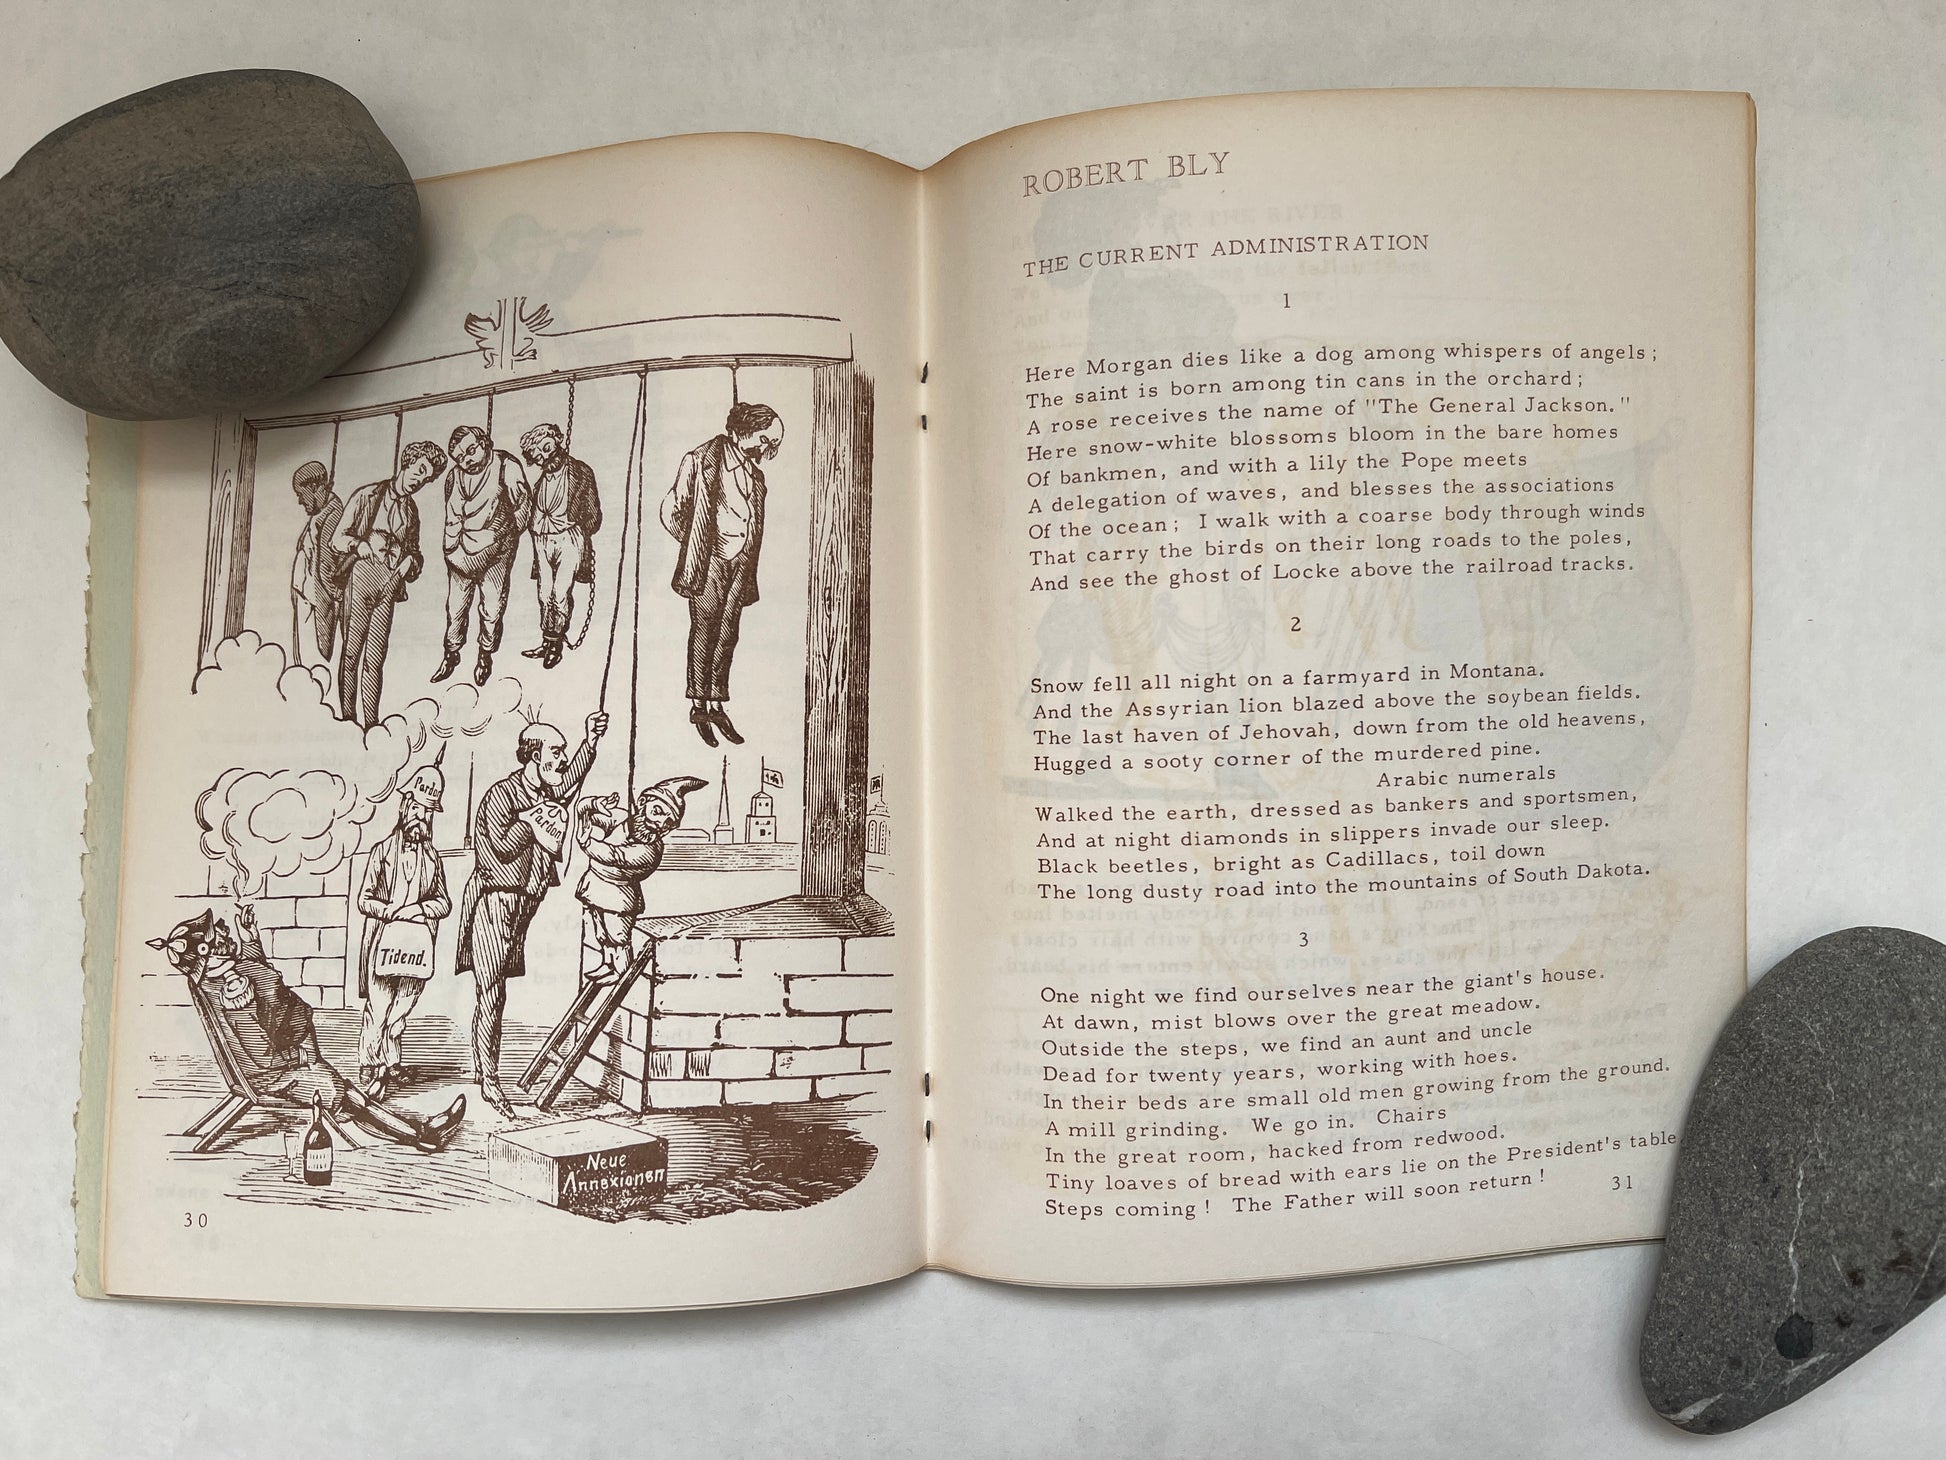 Pardon
Pardon
Tidend.
Neue
Annexionen
30
ROBERT BLY
THE CURRENT ADMINISTRATION
1
Here Morgan dies like a dog among whispers of angels;
The saint is born among tin cans in the orchard;
A rose receives the name of "The General Jackson."
Here snow-white blossoms bloom in the bare homes
Of bankmen, and with a lily the Pope meets
A delegation of waves, and blesses the associations
Of the ocean; I walk with a coarse body through winds
That carry the birds on their long roads to the poles,
And see the ghost of Locke above the railroad tracks.
2
Snow fell all night on a farmyard in Montana.
And the Assyrian lion blazed above the soybean fields.
The last haven of Jehovah, down from the old heavens,
Hugged a sooty corner of the murdered pine.
Arabic numerals
Walked the earth, dressed as bankers and sportsmen,
And at night diamonds in slippers invade our sleep.
Black beetles, bright as Cadillacs, toil down
The long dusty road into the mountains of South Dakota.
3
One night we find ourselves near the giant's house.
At dawn, mist blows over the great meadow.
Outside the steps, we find an aunt and uncle
Dead for twenty years, working with hoes.
In their beds are small old men growing from the ground.
A mill grinding. We go in. Chairs
In the great room, hacked from redwood.
Tiny loaves of bread with ears lie on the President's table
Steps coming! The Father will soon return!
31